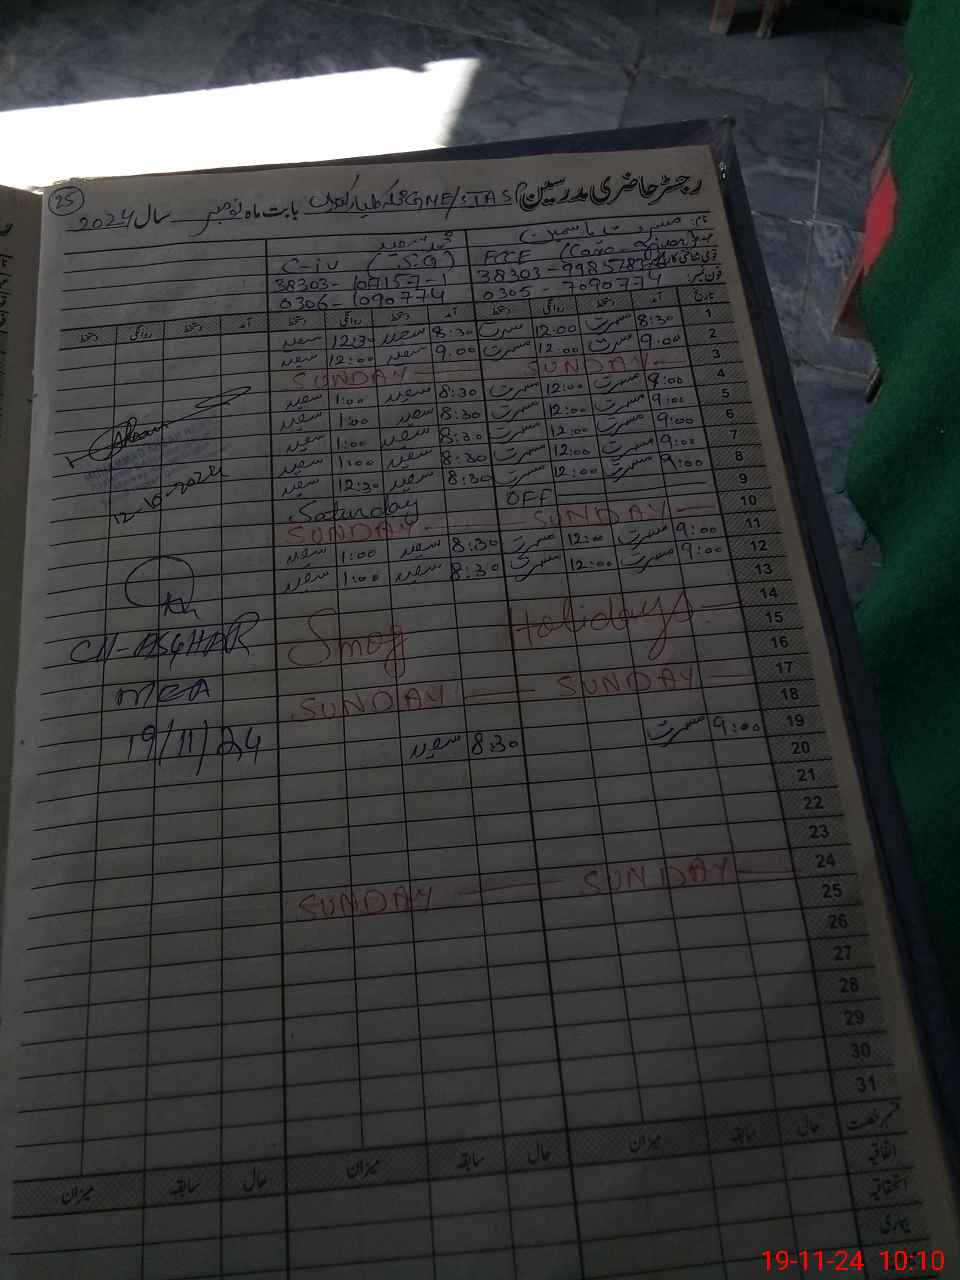 25
رجسٹر حاضری مدرسین بابت ماہ نومبر سال 2024
نام:
C-iv
38303-
38303-
فون نمبر:
0305 - 7090774
0306 - 1090774
تاریخ آمد دستخط روانگی دستخط آمد دستخط روانگی دستخط آمد دستخط روانگی دستخط
1 8:30 مسرت 12:00 مسرت 8:30 سعید 12:30 سعید
2 9:00 مسرت 12:00 مسرت 9:00 سعید 12:00 سعید
3 SUNDAY SUNDAY
4 9:00 مسرت 12:00 مسرت 8:30 سعید 1:00 سعید
5 9:00 مسرت 12:00 مسرت 8:30 سعید 1:00 سعید
6 9:00 مسرت 12:00 مسرت 8:30 سعید 1:00 سعید
7 9:00 مسرت 12:00 مسرت 8:30 سعید 1:00 سعید
8 9:00 مسرت 12:00 مسرت 8:30 سعید 12:30 سعید
9 Saturday OFF
10 SUNDAY SUNDAY
11 9:00 مسرت 12:00 مسرت 8:30 سعید 1:00 سعید
12 9:00 مسرت 12:00 مسرت 8:30 سعید 1:00 سعید
13
14
15 Smog Holidays
16
17 SUNDAY SUNDAY
18
19 9:00 مسرت 8:30 سعید
20
21
22
23
24 SUNDAY SUNDAY
25
26
27
28
29
30
31
12-10-2024
CH-ASGHAR
MEA
19/11/24
قسم رخصت حال سابقہ میزان حال سابقہ میزان حال سابقہ میزان
اتفاقیہ
استحقاقیہ
بیماری
19-11-24 10:10